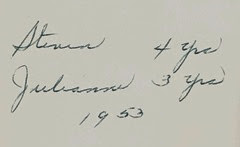 Steven 4 yrs
Julianne 3 yrs
1953